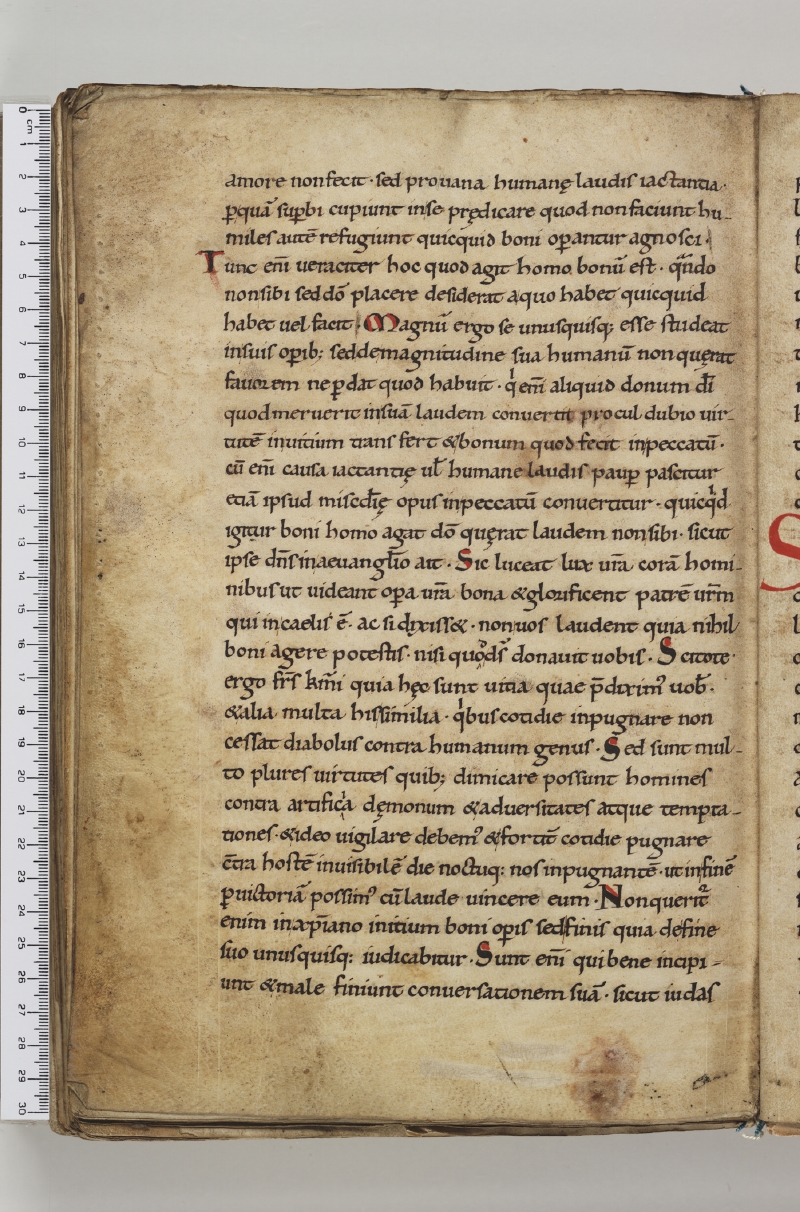 amore non fecit · sed pro uana humanę laudis iactantia ·
ꝑquā suꝑbi cupiunt in se prędicare quod non faciunt hu-
miles autē refugiunt quicquid boni oꝑantur agnosci ·
Tunc enī ueraciter hoc quod agit homo bonū est · qn̄do
non sibi sed dō placere desiderat a quo habet quicquid
habet uel facit · Magnū ergo se unusquisq; esse studeat
in suis oꝑib; sed de magnitudine sua humanū non quęrat
fauorem ne ꝑdat quod habuit · qi enī aliquid donum dī
quod meruerit in suā laudem conuertit procul dubio uir-
tutē in uitium transfert & bonum quod fecit in peccatū ·
cū enī causa iactantię ul̄ humane laudis pauꝑ pascitur
etiā ipsud misc̄dię opus in peccatū conuertitur · quicqid
igitur boni homo agat dō quęrat laudem non sibi · sicut
ipse dn̄s in aeuangl̄io ait · Sic luceat lux ur̄a corā homi-
nibus ut uideant oꝑa ur̄a bona & glorificent patrē ur̄m
qui in caelis ē · ac si dixiss& · non uos laudent quia nihil
boni agere potestis · nisi quod ds̄ donauit uobis · Scitote
ergo fr̄s km̄i quia hęc sunt uitia quae p̄diximꝰ uob̄ ·
& alia multa his similia · qibus cotidie inpugnare non
cessat diabolus contra humanum genus · Sed sunt mul-
to plures uirtutes quib; dimicare possunt homines
contra artificia dęmonum & aduersitates atque tempta-
tiones · & ideo uigilare debemꝰ & fortit̄ cotidie pugnare
c̄tra hostē inuisibilē die noctuq: nos inpugnantē · ut in fine
ꝑ uictoriā possimꝰ cū laude uincere eum · Non querit̄
enim in xp̄iano initium boni oꝑis sed finis quia de fine
suo unusquisq: iudicabitur · Sunt enī qui bene incipi-
unt & male finiunt conuersationem suā · sicut iudas